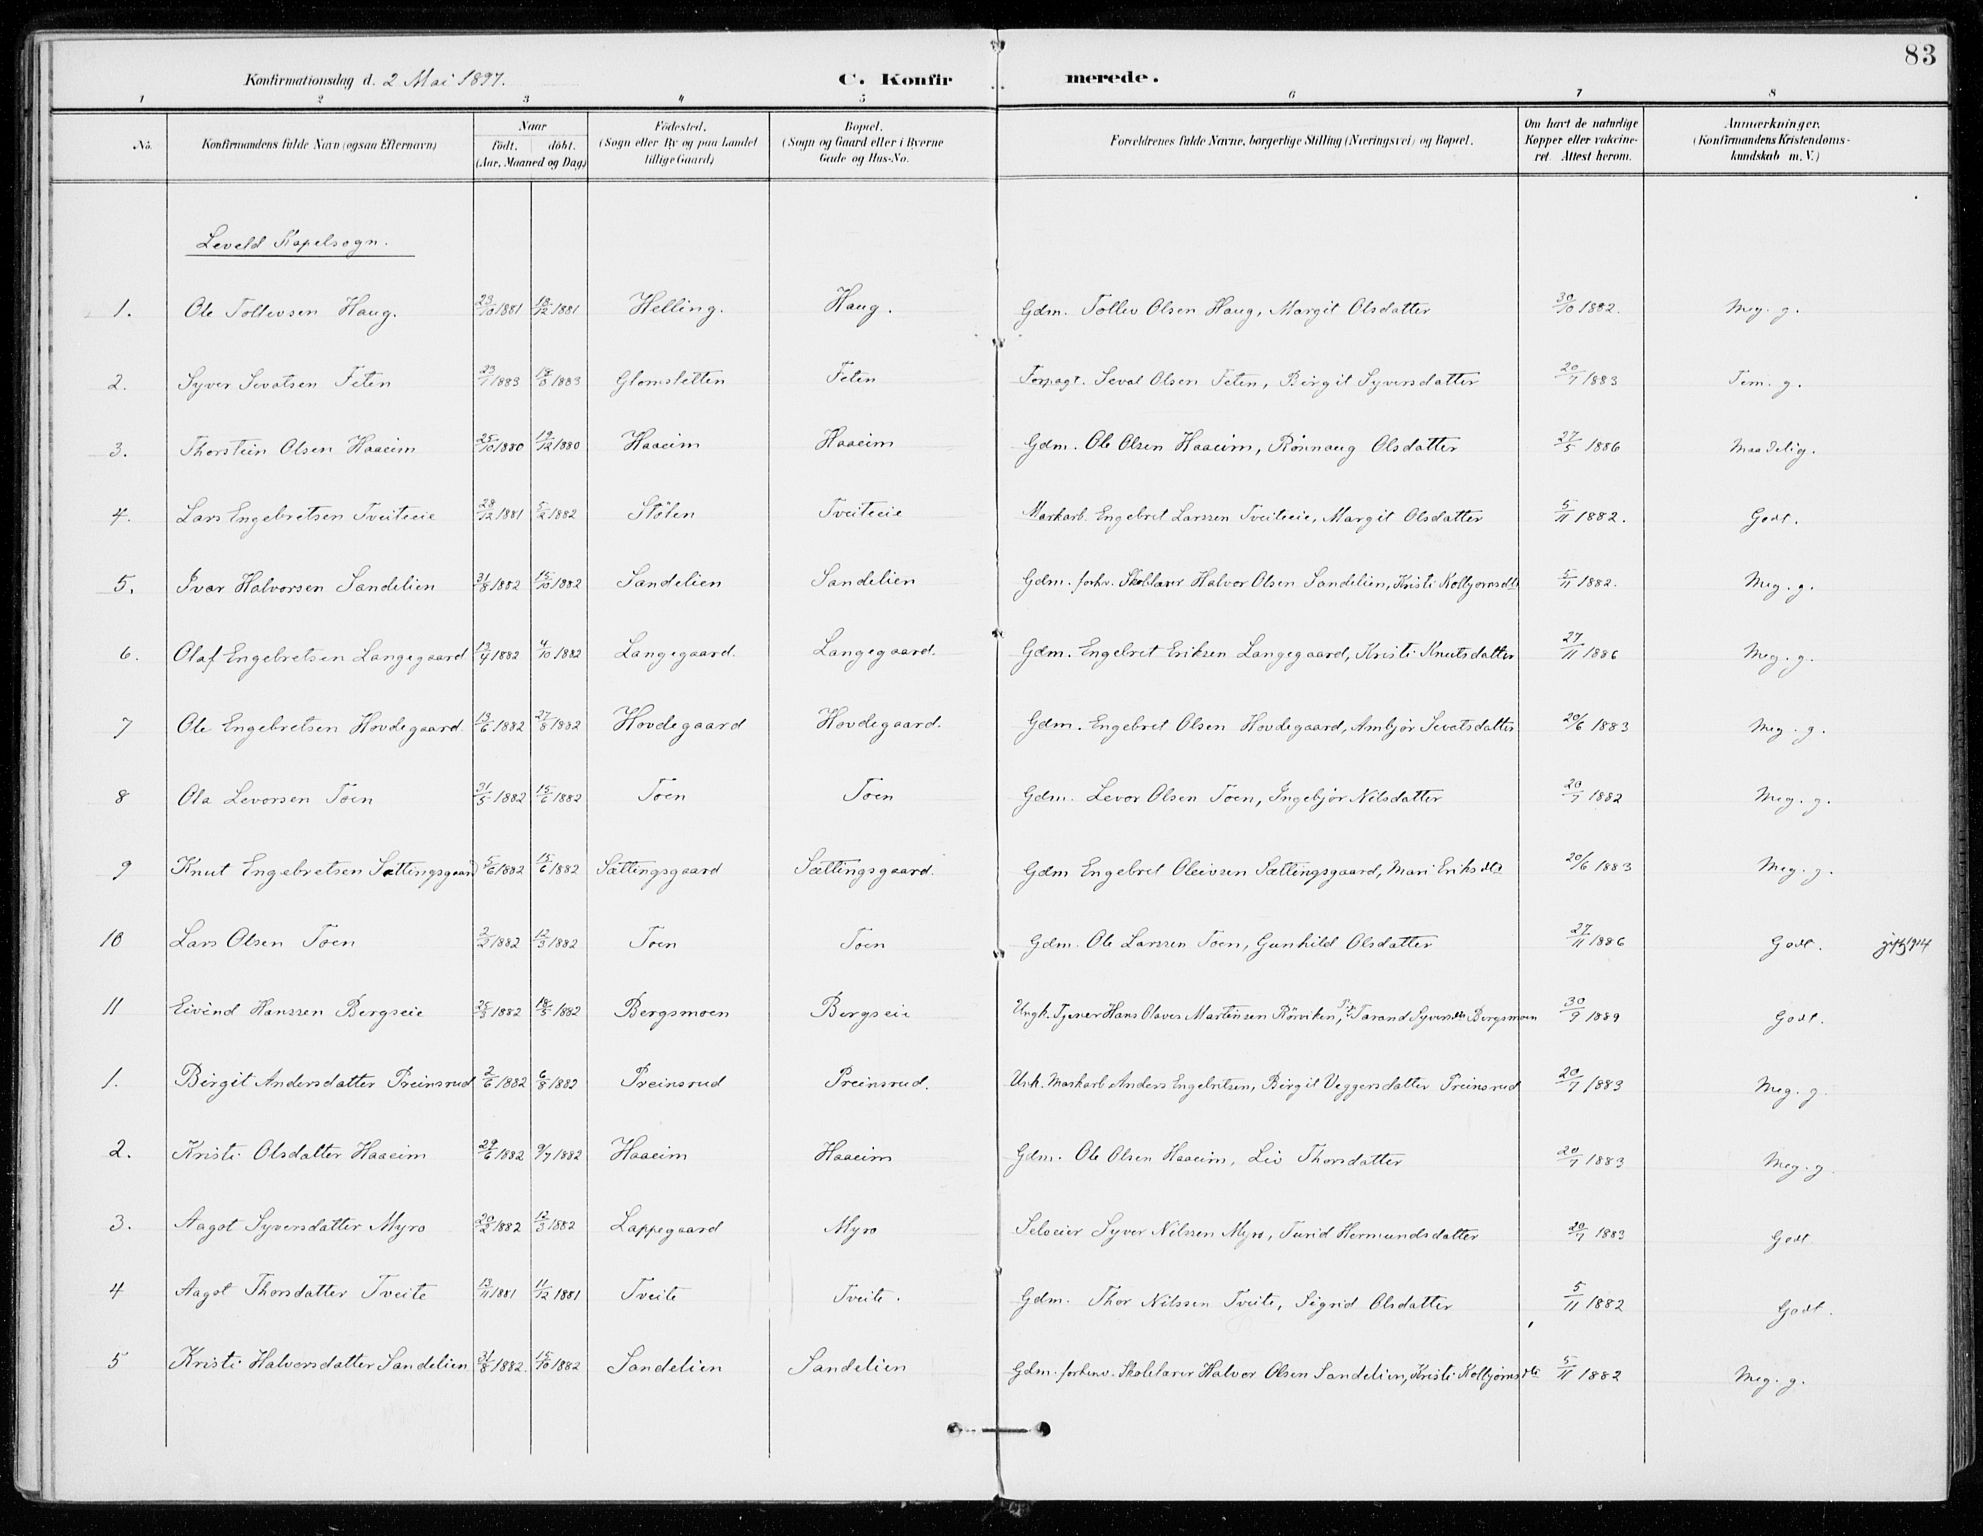 83
Konfirmationsdag d. 2 Mai 1897. C. Konfirmerede.
1 2 3 4 5 6 7 8
No. Konfirmandens fulde Navn (ogsaa Efternavn) Naar født. døbt. (Aar, Maaned og Dag) Fødested. (Sogn eller By og paa Landet tillige Gaard) Bopæl. (Sogn og Gaard eller i Byerne Gade og Hus-No. Forældrenes fulde Navne, borgerlige Stilling (Næringsvei) og Bopæl. Om havt de naturlige Kopper eller vakcineret. Attest herom. Anmerkninger. (Konfirmandens Kristendomskundskab m. V.)
Leveld Kapelsogn.
1. Ole Tollevsen Haug. 23/10 1881 18/12 1881 Helling. Haug. Gdm. Tollev Olsen Haug, Margit Olsdatter 30/10 1882. Meg. g.
2. Syver Sevatsen Feten 23/1 1883 18/3 1883 Glomsletten Feten Forpagt. Seval Olsen Feten, Birgit Syversdatter 20/7 1883 Tem. g.
3. Thorstein Olsen Haaeim 25/10 1880 19/12 1880 Haaeim Haaeim Gdm. Ole Olsen Haaeim, Rønnaug Olsdatter 27/5 1886 Maadelig.
4. Lars Engebretsen Tveiteeie 28/12 1881 5/2 1882 Stølen Tveiteeie Markarb. Engebret Larssen Tveiteeie, Margit Olsdatter 5/11 1882. Godt.
5. Ivar Halvorsen Sandelien 31/8 1882 15/10 1882 Sandelien Sandelien Gdm. forhv. Skolelærer Halvor Olsen Sandelien, Kristi Kolbjørnsdtr 5/11 1882. Meg. g.
6. Olaf Engebretsen Langegaard 13/9 1882 4/10 1882 Langegaard Langegaard. Gdm. Engebret Eriksen Langegaard, Kristi Knutsdatter 27/11 1886 Meg. g.
7 Ole Engebretsen Hovdegaard. 13/6 1882 27/8 1882 Hovdegaard Hovdegaard. Gdm. Engebret Olsen Hovdegaard, Ambjør Sevatsdatter 20/6 1883 Meg. g.
8 Ola Levorsen Toen 31/5 1882 15/6 1882 Toen Toen Gdm. Levor Olsen Toen, Ingebjør Nilsdatter 20/7 1882 Meg. g.
9 Knut Engebretsen Sættingsgaard 5/6 1882 15/6 1882 Sættingsgaard Sættingsgaard. Gdm Engebret Oleivsen Sættingsgaard, Mari Eriksdtr 20/6 1883 Meg. g.
10 Lars Olsen Toen 2/2 1882 12/3 1882 Toen Toen Gdm. Ole Larssen Toen, Gunhild Olsdatter 27/11 1886 Godt.
11 Eivind Hanssen Bergseie 25/3 1882 18/5 1882 Bergsmoen Bergseie Ungk. Tjener Hans Olaves Martinsen Rørviken, Tarand Syversdtr Bergsmoen 30/9 1889 Godt.
1. Birgit Andersdatter Preinsrud 2/6 1882 6/8 1882 Preinsrud Preinsrud. Unk. Markarb Anders Engebritsen, Birgit Veggersdatter Preinsrud 20/7 1883 Meg. g.
2. Kristi Olsdatter Haaeim 29/6 1882 9/7 1882 Haaeim Haaeim Gdm. Ole Olsen Haaeim, Liv Thorsdatter 20/7 1883 Meg. g.
3. Aagot Syversdatter Myro 20/2 1882 12/3 1882 Lappegaard Myro Selveier Syver Nilssen Myro, Turid Hermundsdatter 20/7 1883 Godt
4 Aagot Thorsdatter Tveite 13/11 1881 11/12 1881 Tveite Tveite. Gdm. Thor Nilssen Tveite, Sigrid Olsdatter 5/11 1882 Godt.
5 Kristi Halvorsdatter Sandelien 31/8 1882. 15/10 1882 Sandelien Sandelien Gdm. forhenv. Skolelærer Halvor Olsen Sandelien, Kristi Kolbjørnsdtr 5/11 1882 Meg. g.